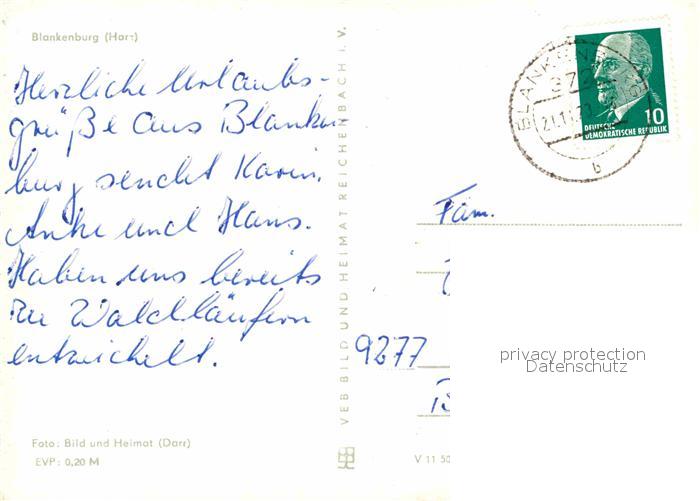 Blankenburg (Harz)
Herzliche Urlaubs-
grüße aus Blanken
burg sendet Karin,
Anke und Hans.
Haben uns bereits
zu Waldläufern
entwickelt.
Foto: Bild und Heimat (Darr)
EVP: 0,20 M
VEB BILD UND HEIMAT REICHENBACH I. V.
BLANKENBURG
372
b
10
DEUTSCHE
DEMOKRATISCHE REPUBLIK
Fam.
9277
V 11 50
privacy protection
Datenschutz